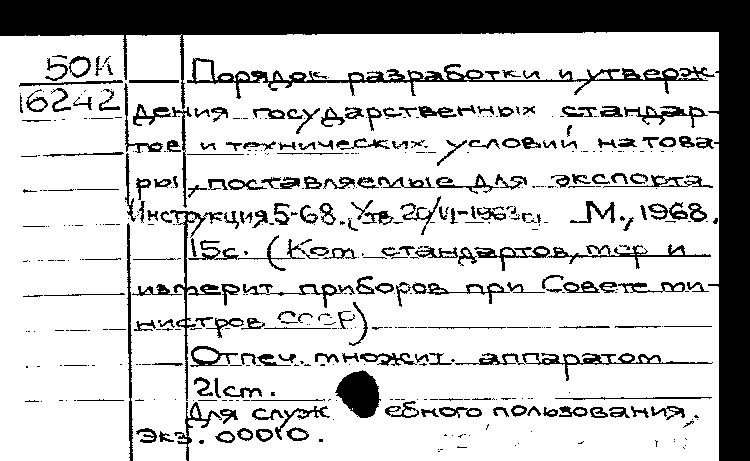 50К
16242
Порядок разработки и утверж-
дения государственных стандар-
тов и технических условий на това-
ры, поставляемые для экспорта
Инструкция 5-68. Утв. 20/VI-1963г. М., 1968.
15с. (Ком. стандартов, мер и
измерит. приборов при Совете ми-
нистров СССР).
Отпеч. множит. аппаратом
21см.
Для служебного пользования.
Экз. 00010.